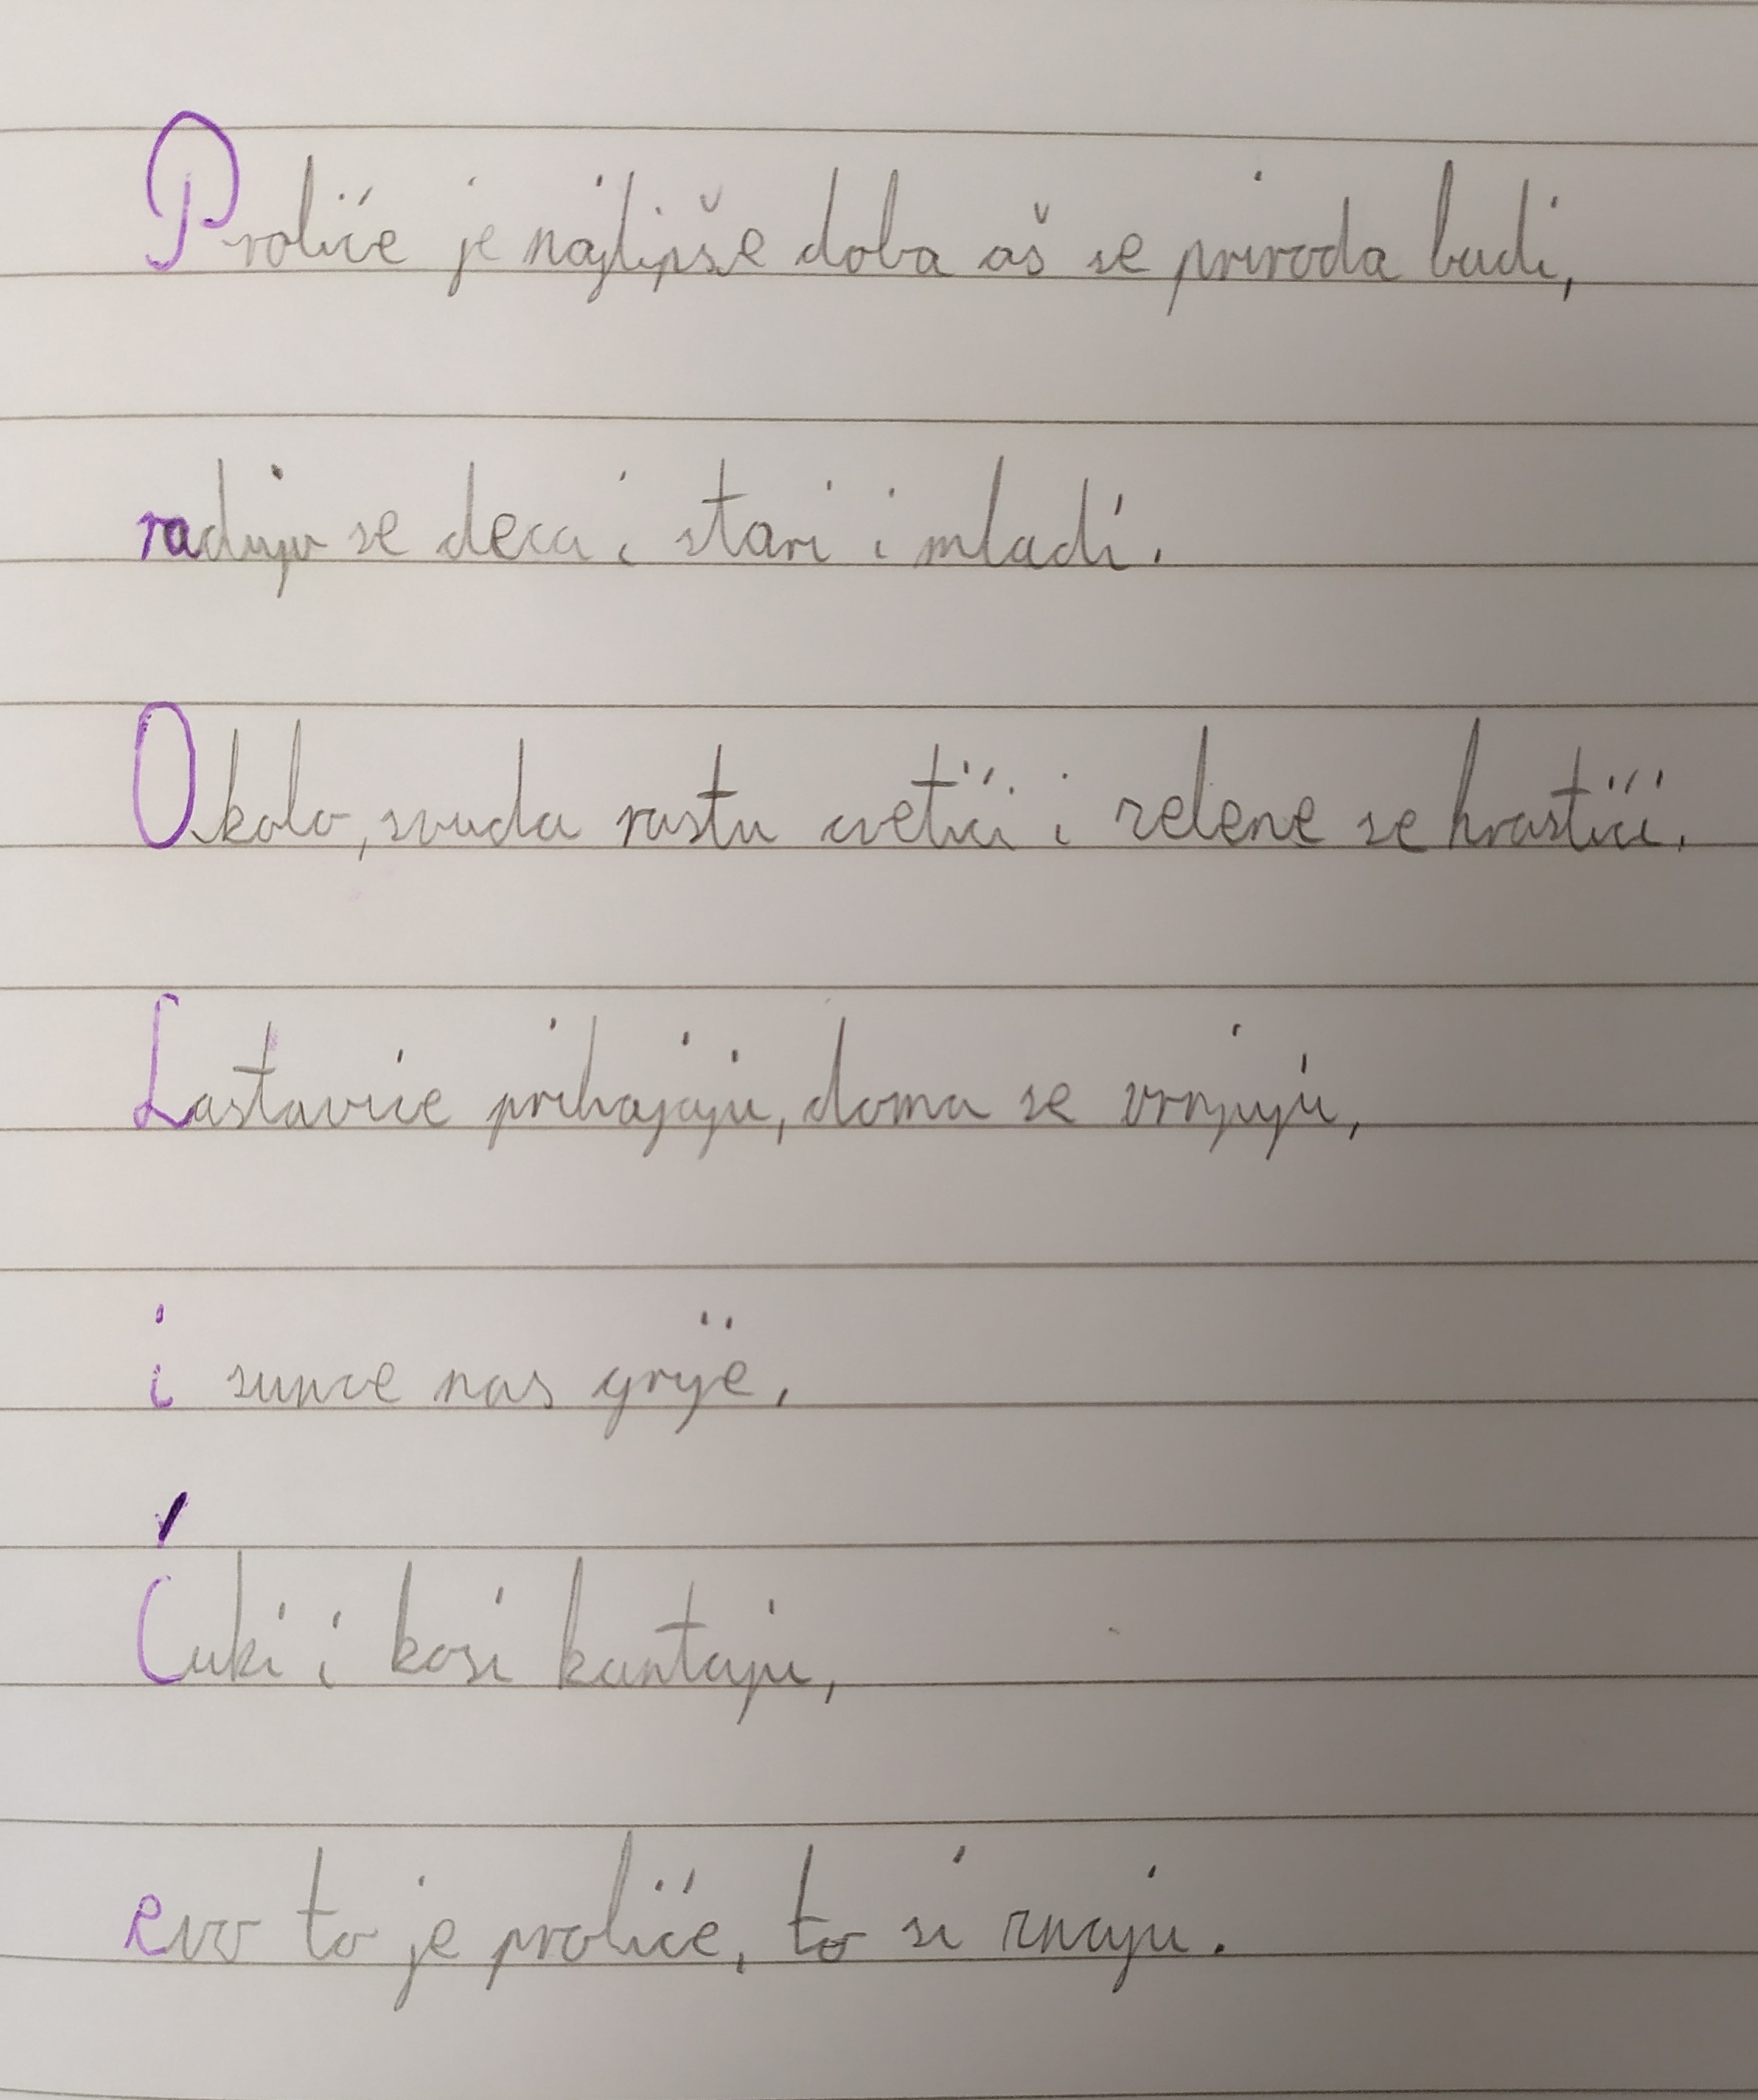 Proliće je najlipše doba aš se priroda budi,
raduju se deca i stari i mladi.
Okolo, svuda rastu cvetići i zelene se hrastići.
Lastavice prihajaju, doma se vrnjuju,
i sunce nas grije.
Ćuki i kosi kantaju,
evo to je proliće, to si znaju.